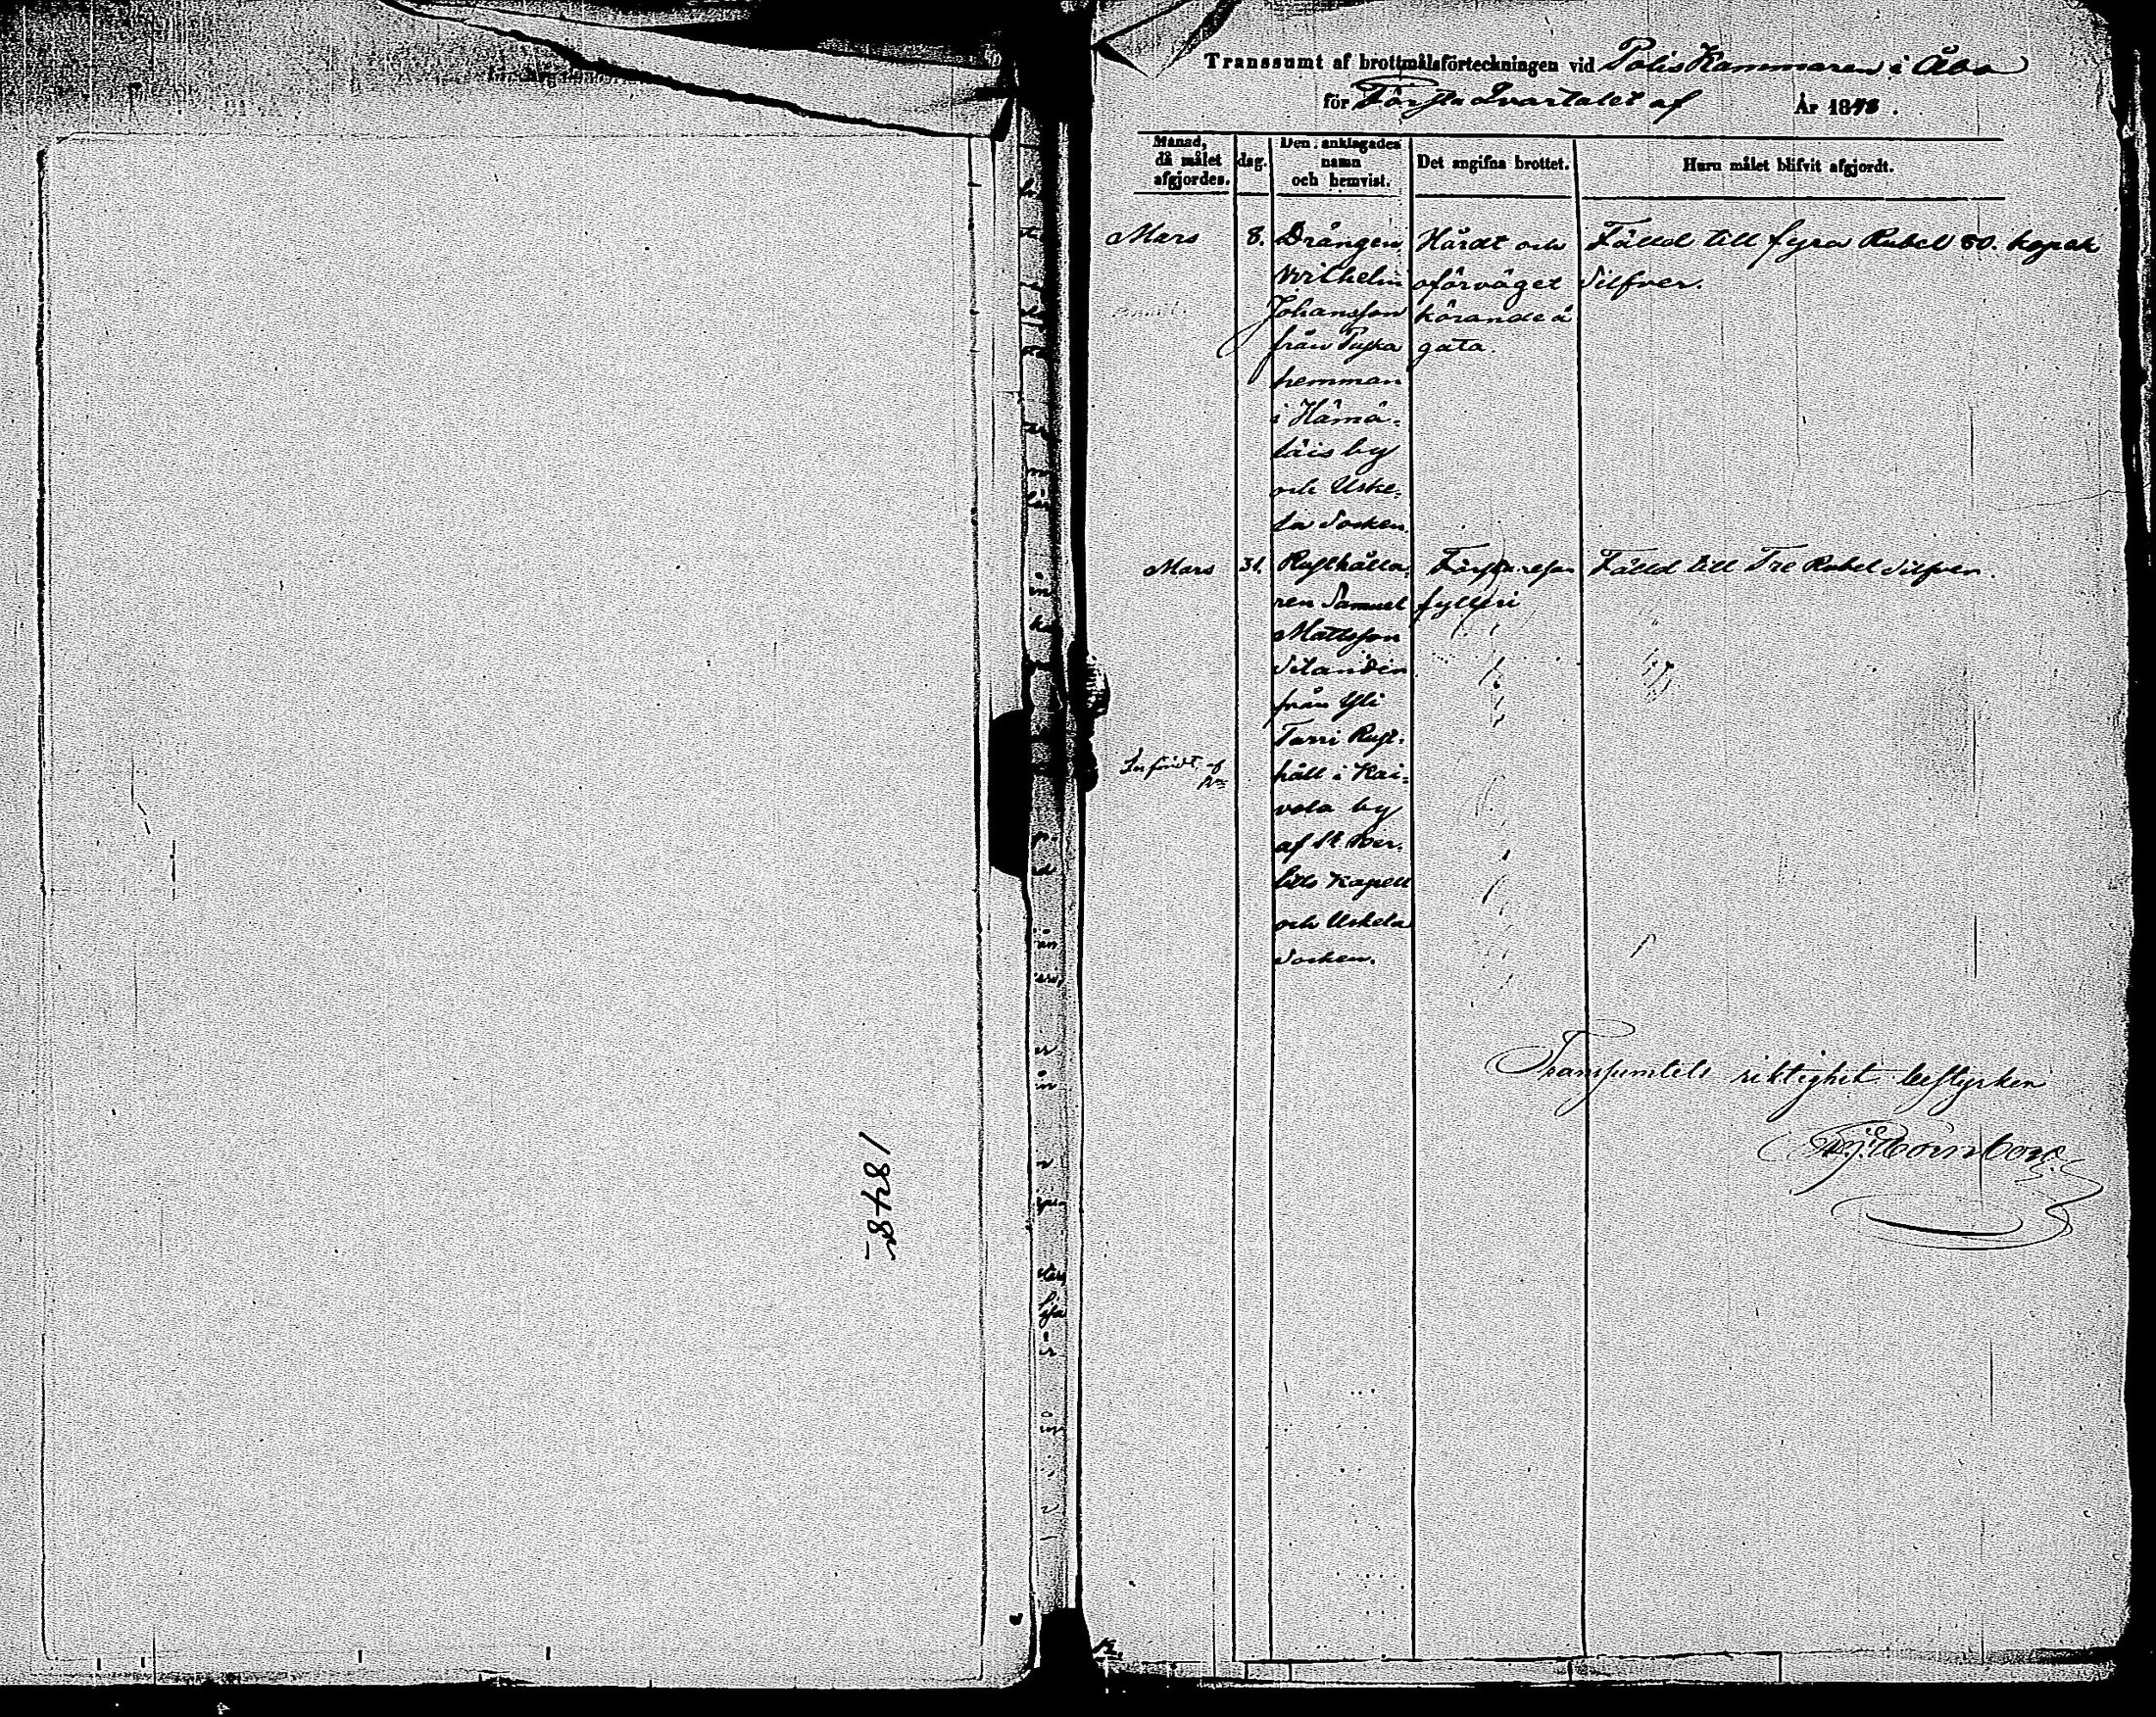 1848.
Transsumt af brottmålsförteckningen vid Polis Kammaren i Åbo
för Första Qvartalet af År 1848.
Månad, då målet afgjordes.
dag.
Den anklagades namn och hemvist.
Det angifna brottet.
Huru målet blifvit afgjordt.
Mars 8. Drängen Hårdt och Fälld till fyra Rubel 80. kopek
Wilhelm oförväget Silfver.
Johansson körande å
från Puska gata.
hemman
i Hämä-
läis by
och Uske-
la Socken.
Mars 31. Rusthålla- Första resan Fälld till Tre Rubel Silfver.
ren Samuel fylleri
Mattsson
Silandin
från Yli
Tarri Rust-
håll i Kai-
vola by
af St Ber-
tils Kapell
och Uskela
Socken.
Infördt af
Transsumtets riktighet bestyrker